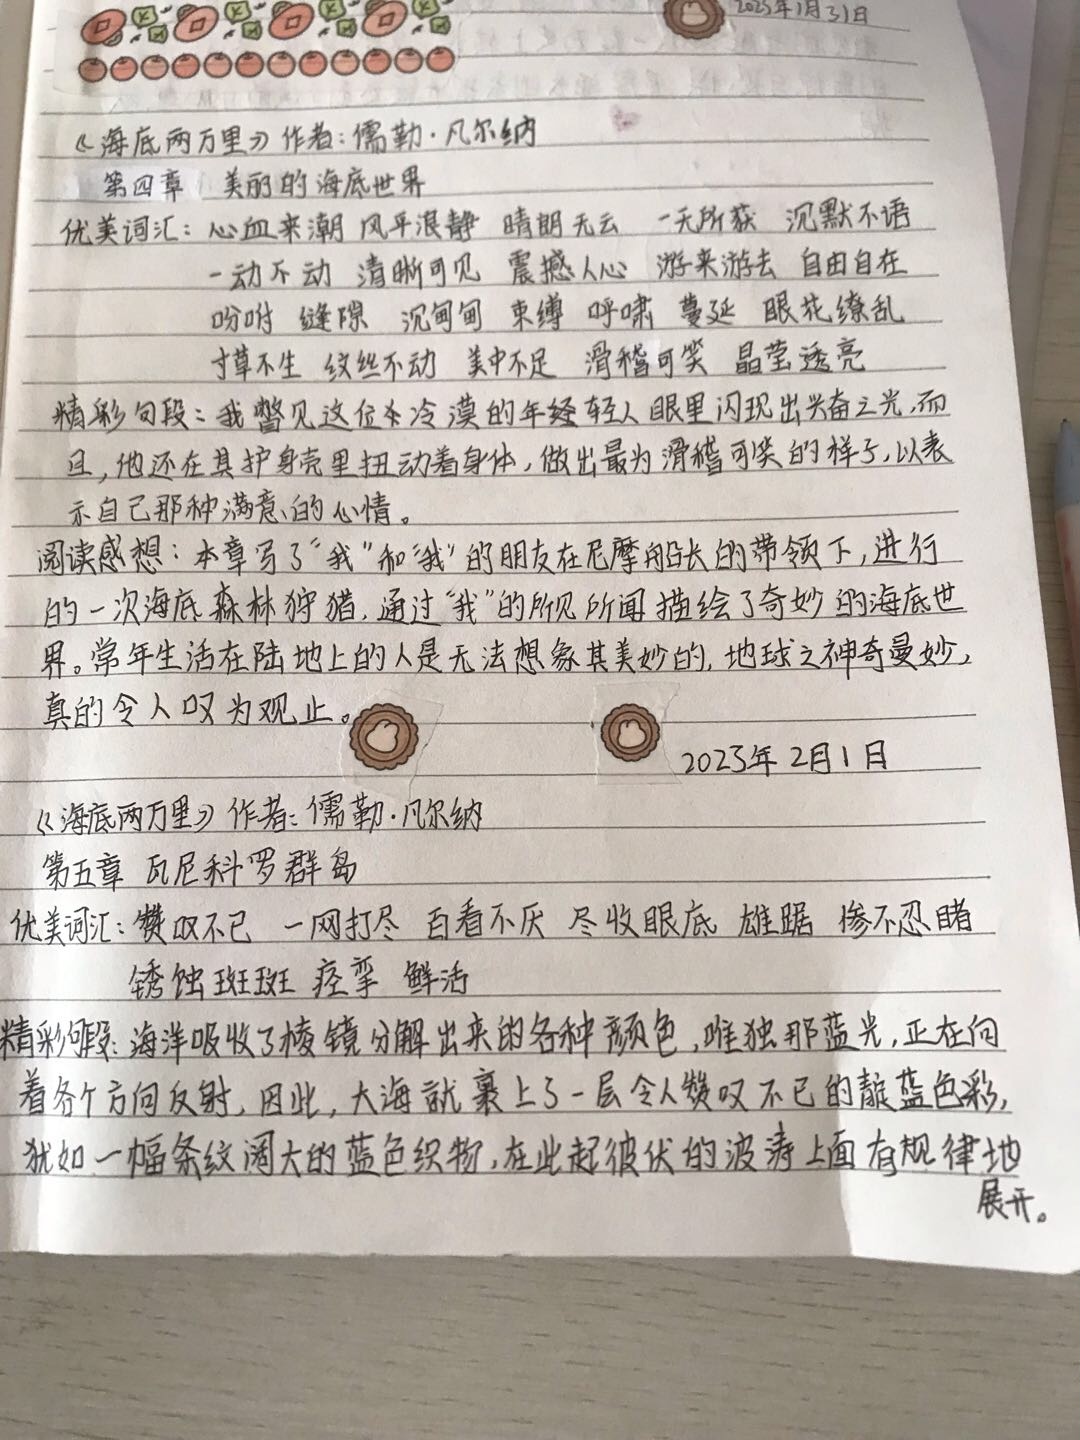 2023年1月31日
《海底两万里》作者:儒勒·凡尔纳
第四章 美丽的海底世界
优美词汇:心血来潮 风平浪静 晴朗无云 一无所获 沉默不语
一动不动 清晰可见 震撼人心 游来游去 自由自在
吩咐 缝隙 沉甸甸 束缚 呼啸 蔓延 眼花缭乱
寸草不生 纹丝不动 美中不足 滑稽可笑 晶莹透亮
精彩句段:我瞥见这位冷漠的年轻人眼里闪现出兴奋之光,而
且,他还在其护身壳里扭动着身体,做出最为滑稽可笑的样子,以表
示自己那种满意的心情。
阅读感想:本章写了“我”和“我”的朋友在尼摩船长的带领下,进行
的一次海底森林狩猎,通过“我”的所见所闻描绘了奇妙的海底世
界。常年生活在陆地上的人是无法想象其美妙的,地球之神奇曼妙,
真的令人叹为观止。
2023年2月1日
《海底两万里》作者:儒勒·凡尔纳
第五章 瓦尼科罗群岛
优美词汇:赞叹不已 一网打尽 百看不厌 尽收眼底 雄踞 惨不忍睹
锈蚀斑斑 痉挛 鲜活
精彩句段:海洋吸收了棱镜分解出来的各种颜色,唯独那蓝光,正在向
着各个方向反射,因此,大海就裹上了一层令人赞叹不已的靛蓝色彩,
犹如一幅条纹阔大的蓝色织物,在此起彼伏的波涛上面有规律地
展开。